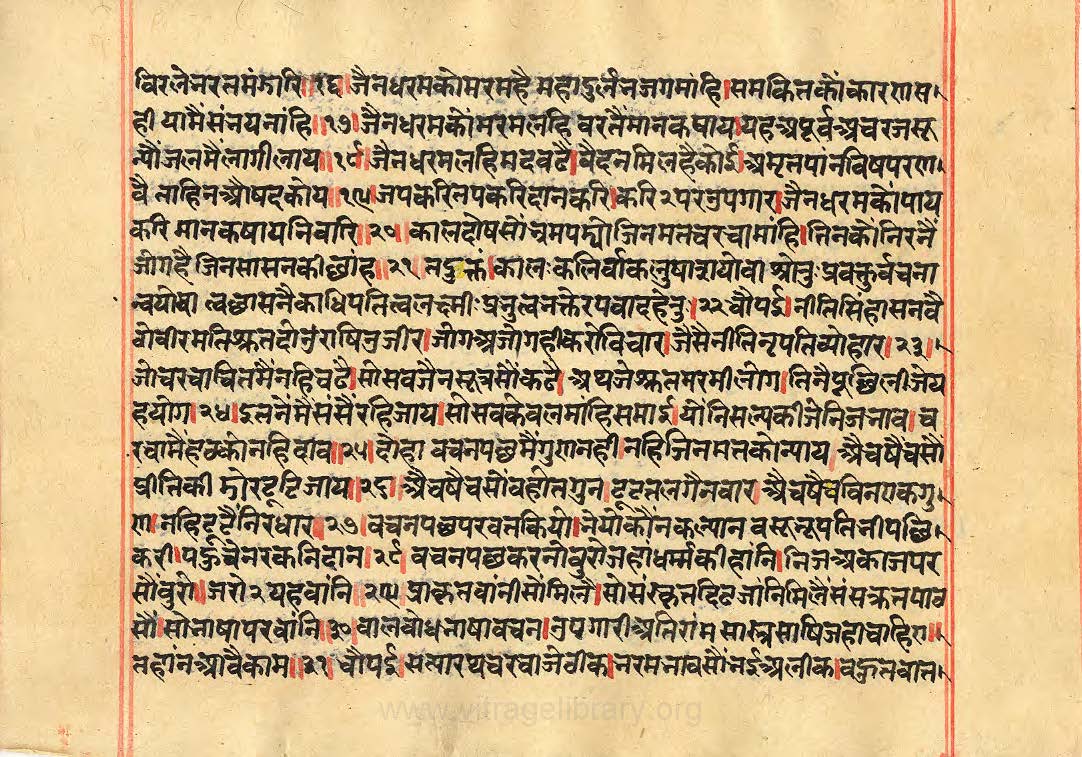 विरलेनरतनमंझारि॥१६॥जैनधरमकोमरमहै महादुर्लभजगमांहि।समकितकौंकारणस।
ही यामैंसंनयनांहि॥१७॥जैनधरमकौंमरमलहि वरतैंमानकषाय।यहअपूर्वअचरजसु
न्यौंजलमैंलागीलाय॥१८॥जैनधरमलहिमदवढै।वैदनमिलहैकोई।अमृतपांनविषपरण।
वै ताहिनऔषदकोय॥१९॥जपकरितपकरिदानकरि।करि२परउपगार।जैनधरमकौंपाय
करि मानकषायनिवारि॥२०॥कालदोषसौंभ्रमपर्यो जिनमतचरचामांहि।तिनकौंनिरनैं
जोगहै जिनसासनकीछांह॥२१॥तदुक्तं।कालःकलिर्वाकलुषाशयोवा श्रोतुःप्रवक्तुर्वचना
न्वयोवा त्वच्छासनैकाधिपतित्वलक्ष्मी प्रभुत्वशक्तेरपवादहेतुः॥२२॥चौपई॥नीतिसिंहासनवै
वोवीरमतिश्रुतदोउराषिउजीर।जोगअजोगहीकरोविचार।जैसैंनीतिनृपतिव्योहार॥२३॥
जोचरचाचितमैंनहिचढै।सोसवजैनसूत्रसौंकढै।अथजेश्रुतमरमीलोग।तिनैपूछिलीजेय
हयोग॥२४॥इतनेंमैंसंसैंरहिजाय।सोसवकेवलमांहिसमाई।यौंनिसल्यकीजेनिजभाव।च
रचामैंहठकोनहिदांव॥२५॥दोहा वचनपछमैंगुणनहीं नहिजिनमतकोन्याय।अैंचषैंचसौं
प्रीतिकी डोरटूटिजाय॥२६॥अैचषैचसौंवहोतगुन।टूटतलगैनवार।अैचषैचविनएकगु
ण।नहिटूटैनिरधार॥२७॥वचनपछपरवतकियो।भयोकौंनकल्यान वसूनृपतिनीपछि।
करी।पर्हूचेनरकनिदान॥२८॥वचनपछकरनोवुरोजहांधर्म्मकीहांनि।निजअकाजपर
सौंवुरो॥जरो२यहवांनि॥२९॥प्राकृतवांनीसौंमिलै।सोसंस्कृतदिढजांनिमिलैसंसकृतपाठ
सौं।सोभाषापरवांनि॥३०॥वालवोधभाषावचन।उपगारीअतिरांम सास्त्रसाषिजहांचाहिए॥
तहांनआवैकाम॥३१॥चौपई॥सत्यारथचरचाजेठीक।नरमभावसौंनईअलीक।वहुतवात।
www.vitragelibrary.org